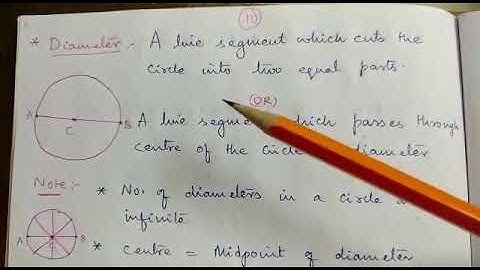 11
* Diameter :- A line segment which cuts the
circle into two equal parts.
(OR)
A B
C
A line segment which passes through
centre of the circle diameter
Note :- * No. of diameters in a circle
infinite
A B
* centre = Midpoint of diameter